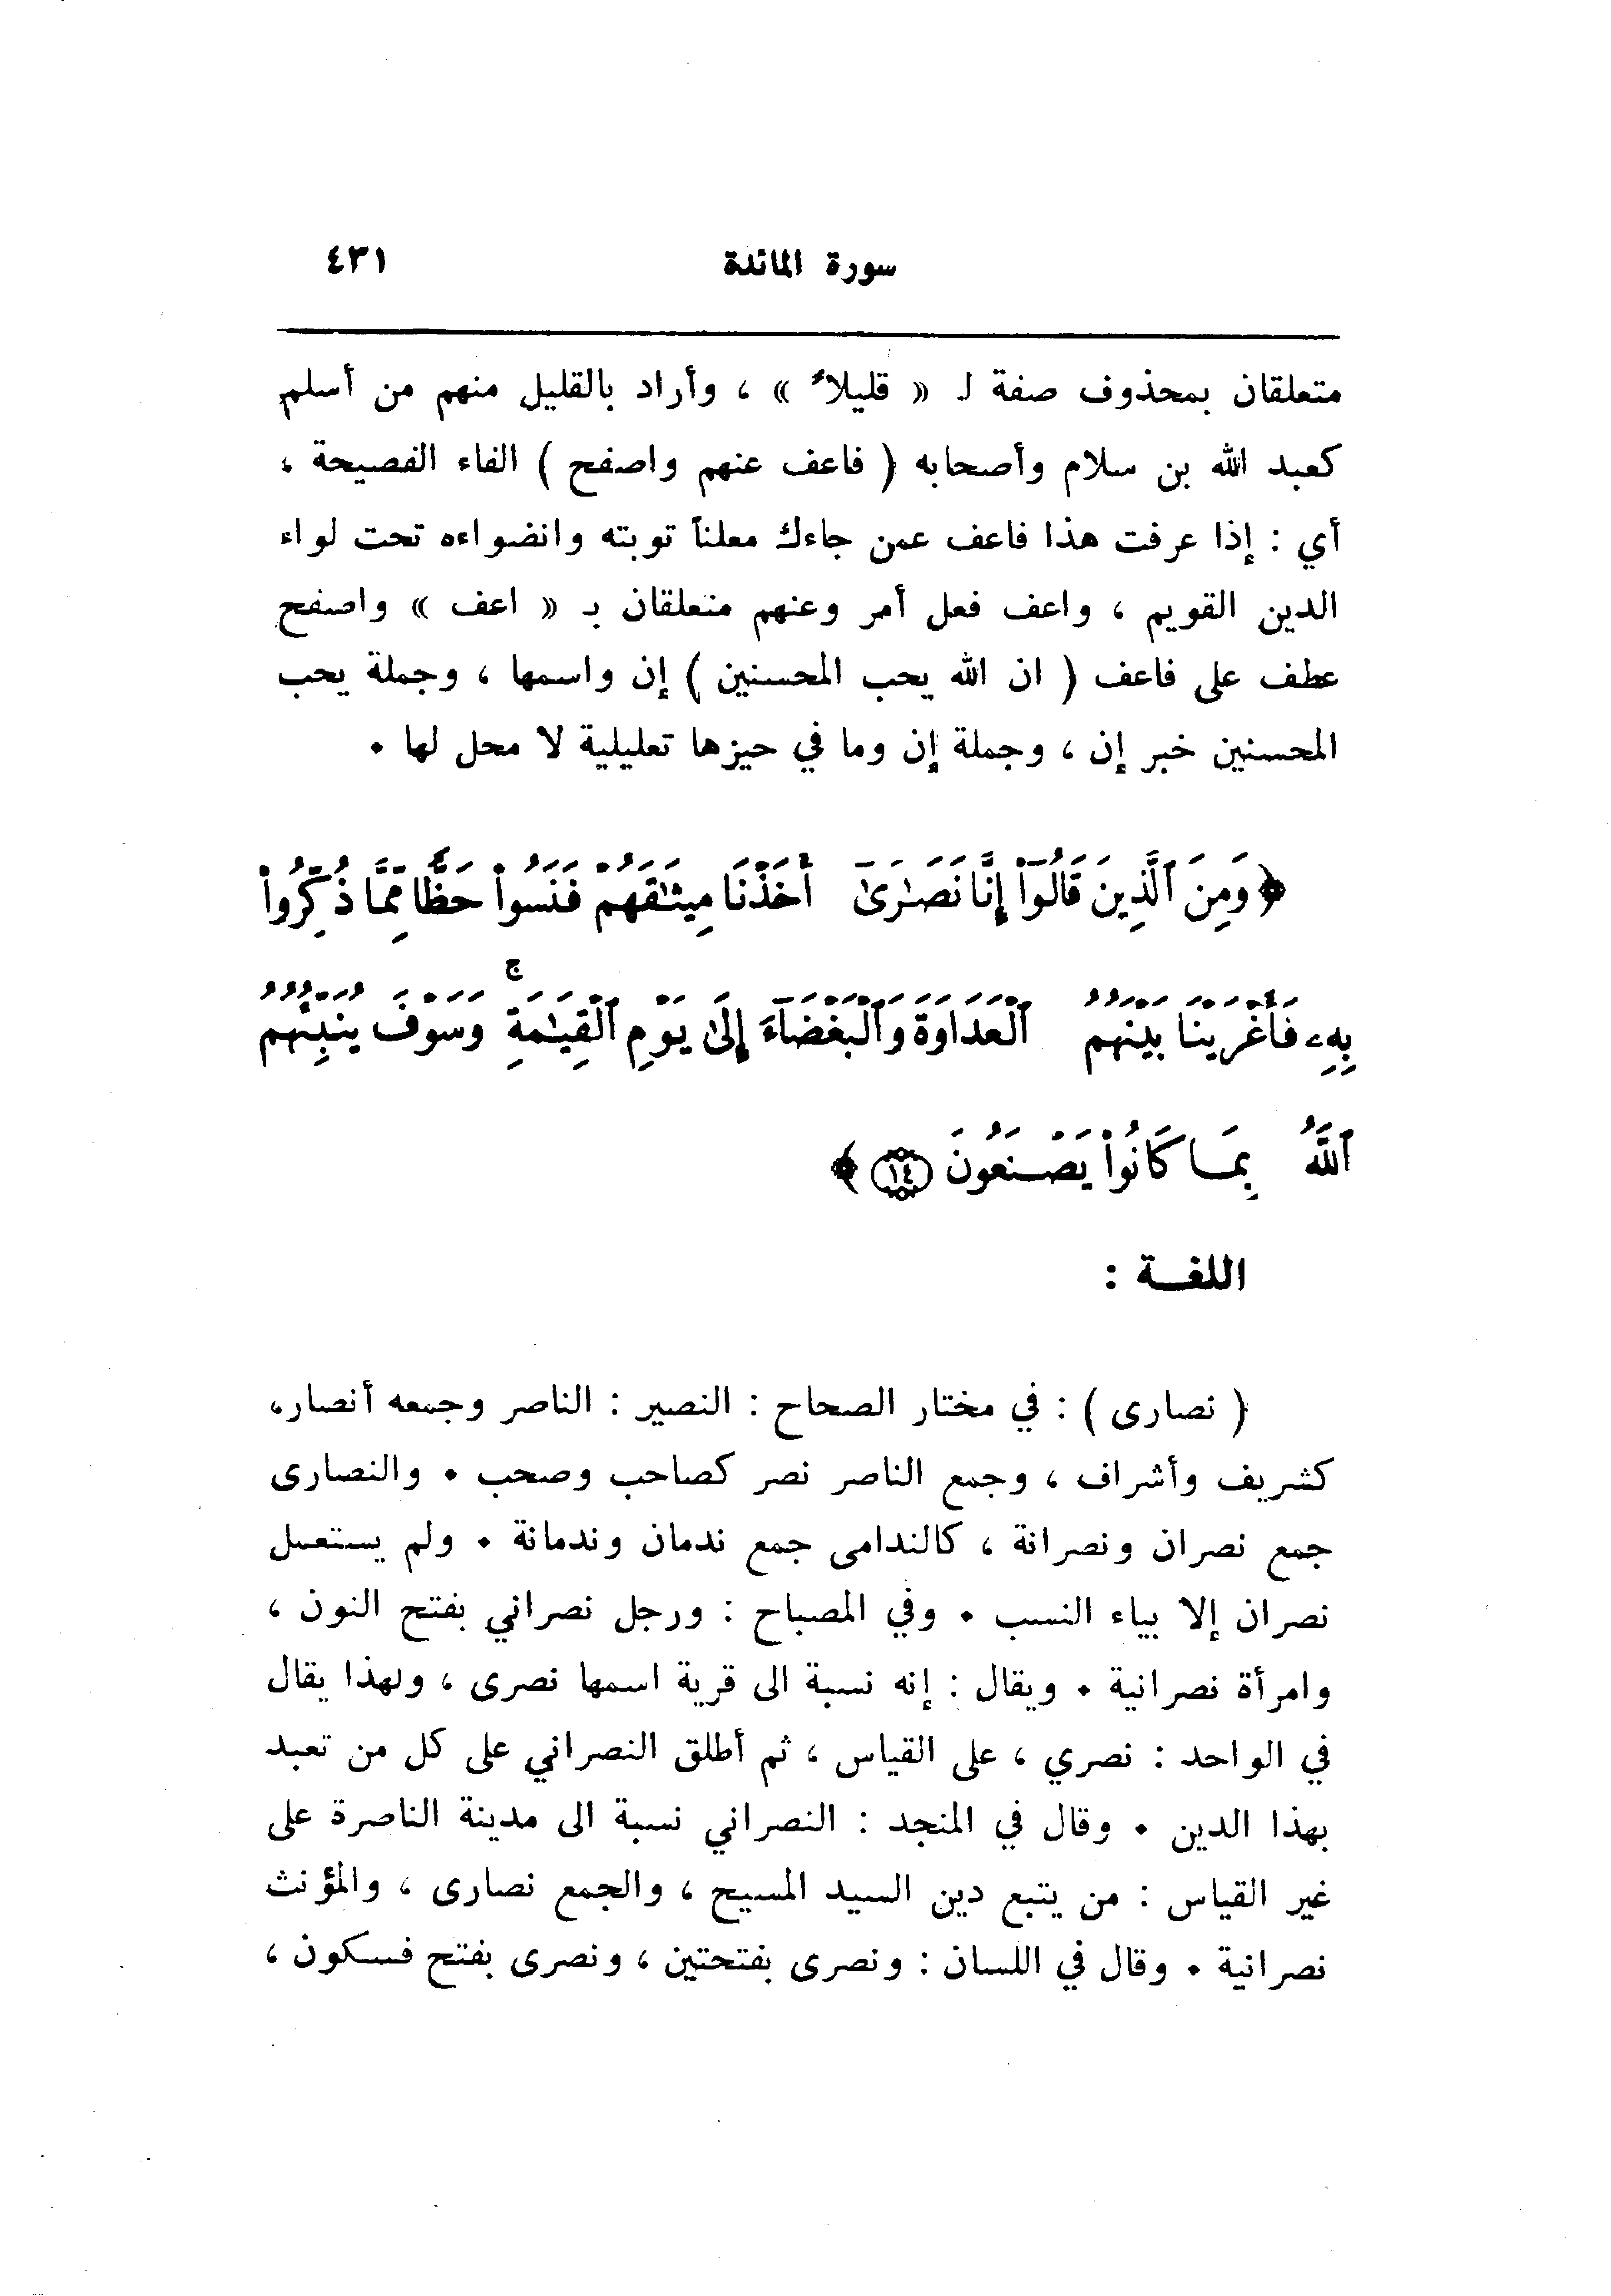 سورة المائدة ٤٣١
متعلقان بمحذوف صفة لـ « قليلاً » ، وأراد بالقليل منهم من أسلم
كعبد الله بن سلام وأصحابه ( فاعف عنهم واصفح ) الفاء الفصيحة ،
أي : إذا عرفت هذا فاعف عمن جاءك معلناً توبته وانضواءه تحت لواء
الدين القويم ، واعف فعل أمر وعنهم متعلقان بـ « اعف » واصفح
عطف على فاعف ( ان الله يحب المحسنين ) إن واسمها ، وجملة يحب
المحسنين خبر إن ، وجملة إن وما في حيزها تعليلية لا محل لها .
﴿ وَمِنَ ٱلَّذِينَ قَالُوٓا۟ إِنَّا نَصَـٰرَىٰٓ أَخَذْنَا مِيثَـٰقَهُمْ فَنَسُوا۟ حَظًّا مِّمَّا ذُكِّرُوا۟
بِهِۦ فَأَغْرَيْنَا بَيْنَهُمُ ٱلْعَدَاوَةَ وَٱلْبَغْضَآءَ إِلَىٰ يَوْمِ ٱلْقِيَـٰمَةِ ۚ وَسَوْفَ يُنَبِّئُهُمُ
ٱللَّهُ بِمَا كَانُوا۟ يَصْنَعُونَ ١٤ ﴾
اللغـة :
( نصارى ) : في مختار الصحاح : النصير : الناصر وجمعه أنصار،
كشريف وأشراف ، وجمع الناصر نصر كصاحب وصحب . والنصارى
جمع نصران ونصرانة ، كالندامى جمع ندمان وندمانة . ولم يستعمل
نصران إلا بياء النسب . وفي المصباح : ورجل نصراني بفتح النون ،
وامرأة نصرانية . ويقال : إنه نسبة الى قرية اسمها نصرى ، ولهذا يقال
في الواحد : نصري ، على القياس ، ثم أطلق النصراني على كل من تعبد
بهذا الدين . وقال في المنجد : النصراني نسبة الى مدينة الناصرة على
غير القياس : من يتبع دين السيد المسيح ، والجمع نصارى ، والمؤنث
نصرانية . وقال في اللسان : ونصرى بفتحتين ، ونصرى بفتح فسكون ،